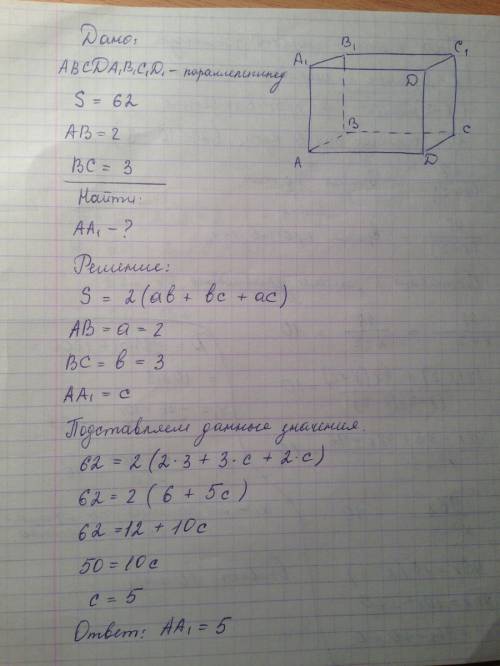 Дано:
ABCDA₁B₁C₁D₁ - параллелепипед
S = 62
AB = 2
BC = 3
Найти:
AA₁ - ?
Решение:
S = 2(ab + bc + ac)
AB = a = 2
BC = b = 3
AA₁ = c
Подставляем данные значения.
62 = 2(2·3 + 3·c + 2·c)
62 = 2(6 + 5c)
62 = 12 + 10c
50 = 10c
c = 5
Ответ: AA₁ = 5
B₁
C₁
A₁
D
B
C
A
D